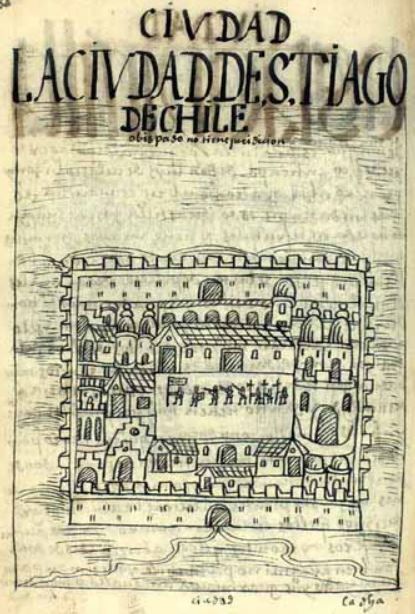 CIVDAD
LACIVDAD.DE.S.TIAGO
DE CHILE
obispado no tiene juridicion
ciudad